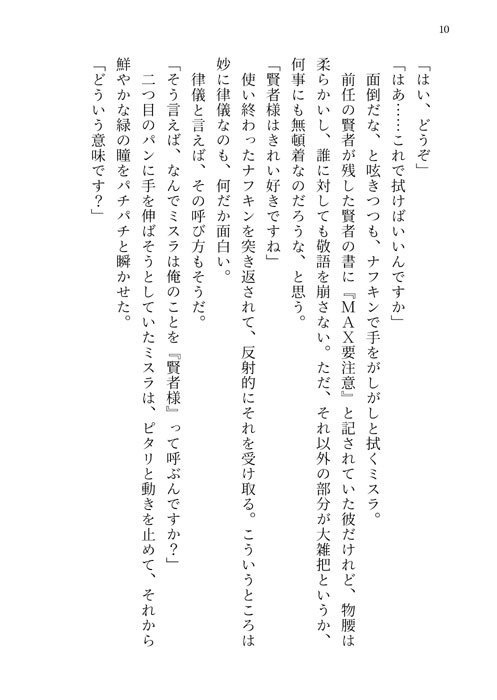 10
「はい、どうぞ」
「はあ……これで拭けばいいんですか」
　面倒だな、と呟きつつも、ナフキンで手をがしがしと拭くミスラ。
　前任の賢者が残した賢者の書に『ＭＡＸ要注意』と記されていた彼だけれど、物腰は
柔らかいし、誰に対しても敬語を崩さない。ただ、それ以外の部分が大雑把というか、
何事にも無頓着なのだろうな、と思う。
「賢者様はきれい好きですね」
　使い終わったナフキンを突き返されて、反射的にそれを受け取る。こういうところは
妙に律儀なのも、何だか面白い。
　律儀と言えば、その呼び方もそうだ。
「そう言えば、なんでミスラは俺のことを『賢者様』って呼ぶんですか？」
　二つ目のパンに手を伸ばそうとしていたミスラは、ピタリと動きを止めて、それから
鮮やかな緑の瞳をパチパチと瞬かせた。
「どういう意味です？」